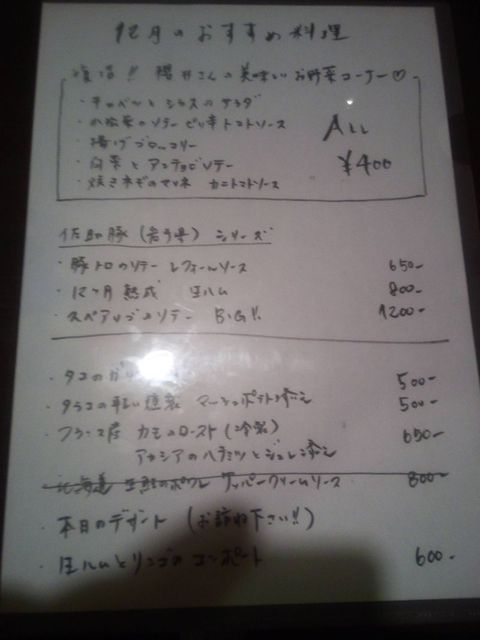 12月のおすすめ料理
復活!! 櫻井さんの美味しいお野菜コーナー♡
・キャベツとシラスのサラダ
・小松菜のソテー ピリ辛トマトソース
・揚げブロッコリー
・白菜とアンチョビソテー
・焼きネギのマリネ カニトマトソース
ALL
¥400
佐助豚(岩手県)シリーズ
・豚トロのソテー レフォールソース 650-
・12ヶ月熟成 生ハム 800-
・スペアリブのソテー BIG!! 1200-
・タコのガリ 500-
・タラコの軽い燻製 マッシュポテト添え 500-
・フランス産 カモのロースト(冷製) 650-
アカシアのハチミツとジュレ添え
・北海道 生鮭のポワレ ケッパークリームソース 800-
・本日のデザート(お訪ね下さい!!)
・生ハムとリンゴのコンポート 600-